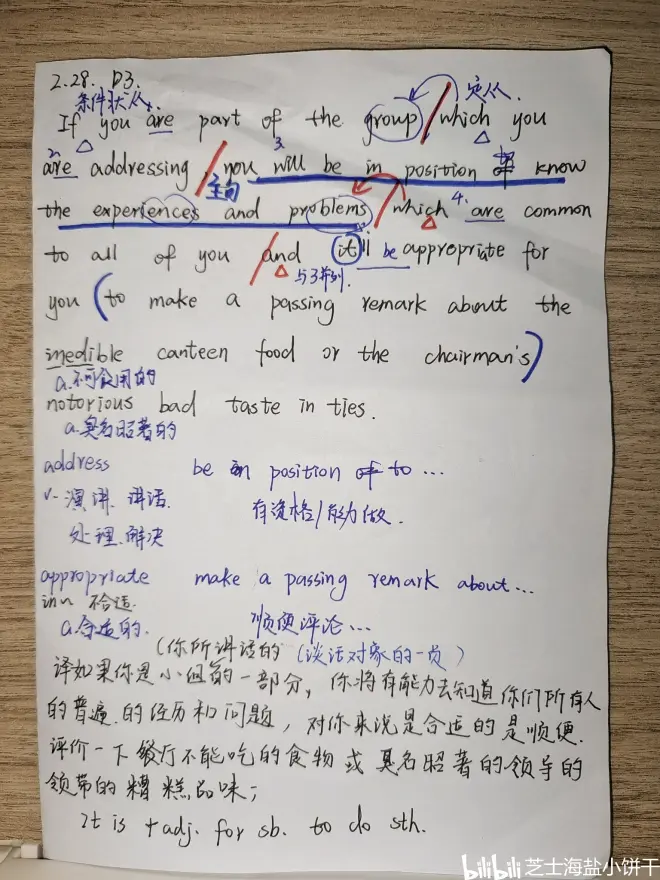 2.28. D3.
条件状从 定从
If you are part of the group which you
are addressing, you will be in position to know
主句
the experiences and problems which are common
to all of you and it'll be appropriate for
与3并列.
you (to make a passing remark about the
inedible canteen food or the chairman's)
a.不可食用的
notorious bad taste in ties.
a.臭名昭著的
address be in position of to ...
v. 演讲.讲话. 有资格/能力做.
处理.解决
appropriate make a passing remark about...
不合适.
a.合适的. 顺便评论...
(你所讲话的 (谈话对象的一员)
译如果你是小组的一部分, 你将有能力去知道你们所有人
的普遍的经历和问题, 对你来说是合适的是顺便
评价一下餐厅不能吃的食物或臭名昭著的领导的
领带的糟糕品味;
It is + adj. for sb. to do sth.
bilibili 芝士海盐小饼干